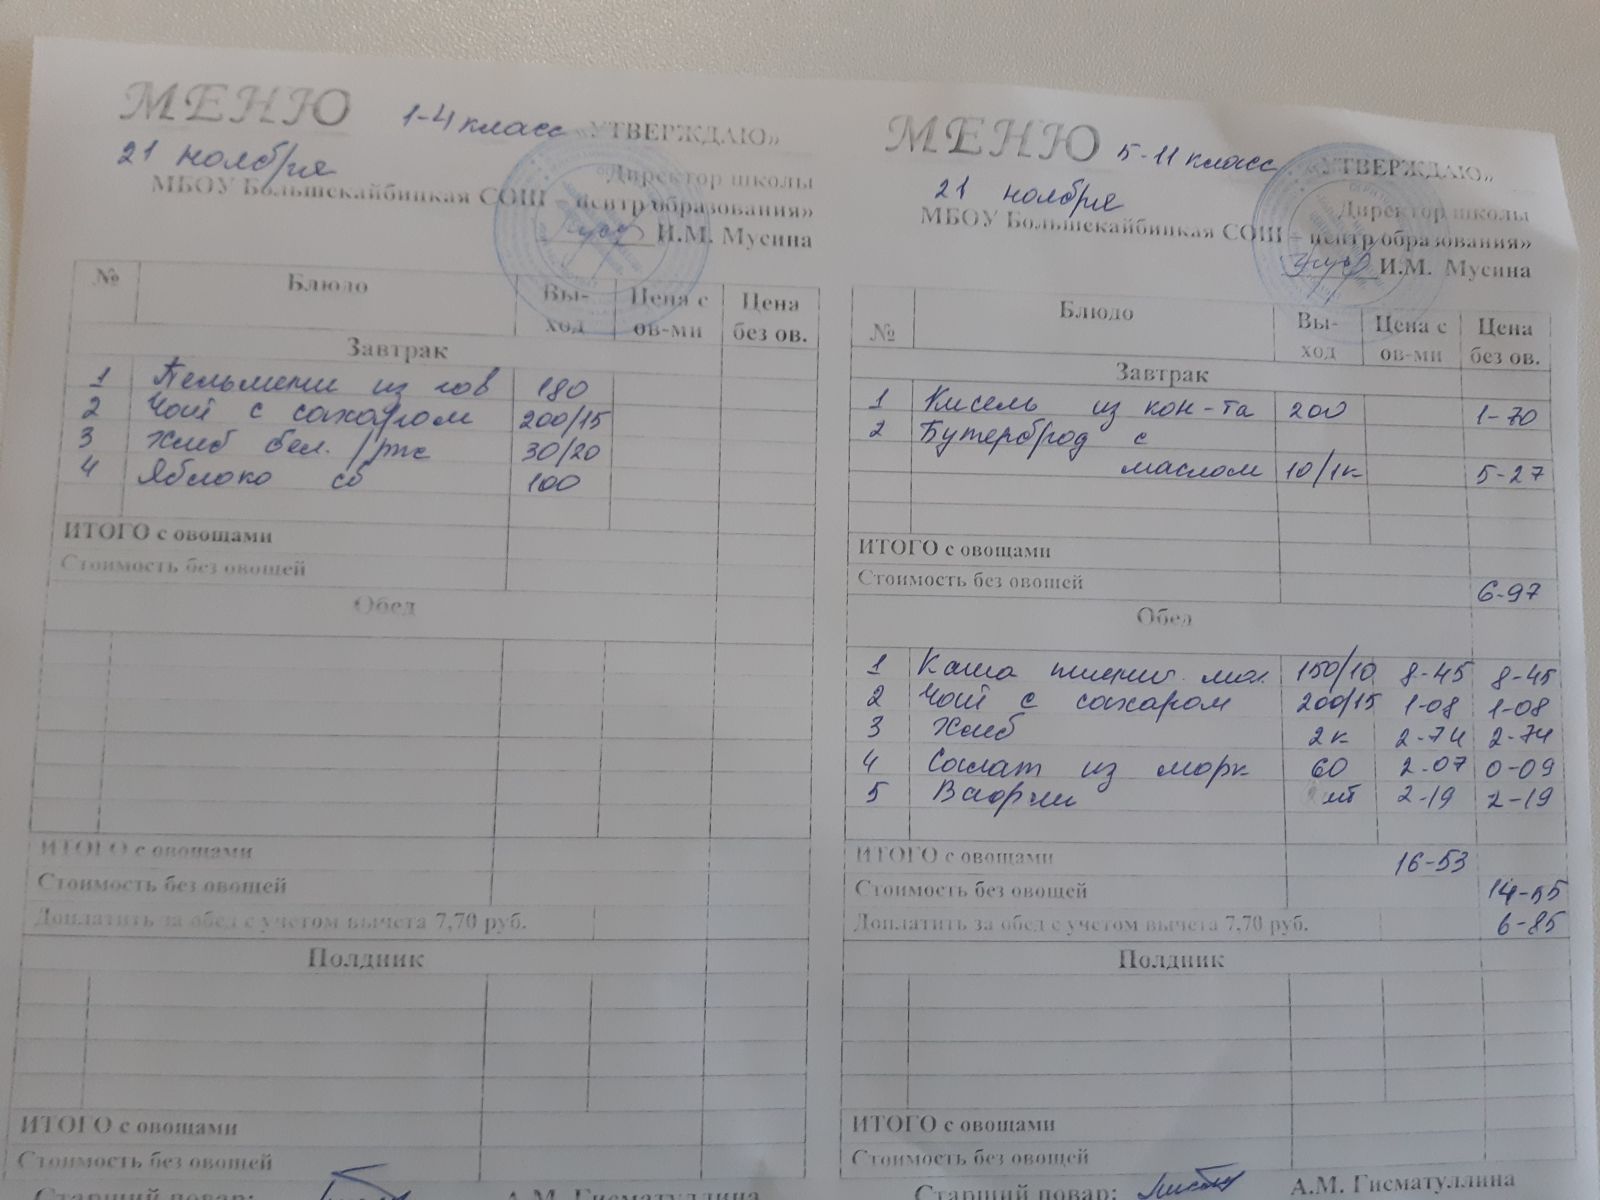 МЕНЮ 1-4 класс «УТВЕРЖДАЮ»
21 ноября Директор школы
МБОУ Большекайбицкая СОШ – центр образования»
И.М. Мусина
№ Блюдо Вы-ход Цена с ов-ми Цена без ов.
Завтрак
1 Пельмени из гов 180
2 Чай с сахаром 200/15
3 Хлеб бел./рж 30/20
4 Яблоко сб 100
ИТОГО с овощами
Стоимость без овощей
Обед
ИТОГО с овощами
Стоимость без овощей
Доплатить за обед с учетом вычета 7,70 руб.
Полдник
ИТОГО с овощами
Стоимость без овощей
Старший повар: А.М. Гисматуллина
МЕНЮ 5-11 класс «УТВЕРЖДАЮ»
21 ноября Директор школы
МБОУ Большекайбицкая СОШ – центр образования»
И.М. Мусина
№ Блюдо Вы-ход Цена с ов-ми Цена без ов.
Завтрак
1 Кисель из кон-та 200 1-70
2 Бутерброд с
маслом 10/1к 5-27
ИТОГО с овощами
Стоимость без овощей 6-97
Обед
1 Каша пшенич. мол. 150/10 8-45 8-45
2 Чай с сахаром 200/15 1-08 1-08
3 Хлеб 2к 2-74 2-74
4 Салат из морк 60 2-07 0-09
5 Вафли шт 2-19 2-19
ИТОГО с овощами 16-53
Стоимость без овощей 14-55
Доплатить за обед с учетом вычета 7,70 руб. 6-85
Полдник
ИТОГО с овощами
Стоимость без овощей
Старший повар: А.М. Гисматуллина